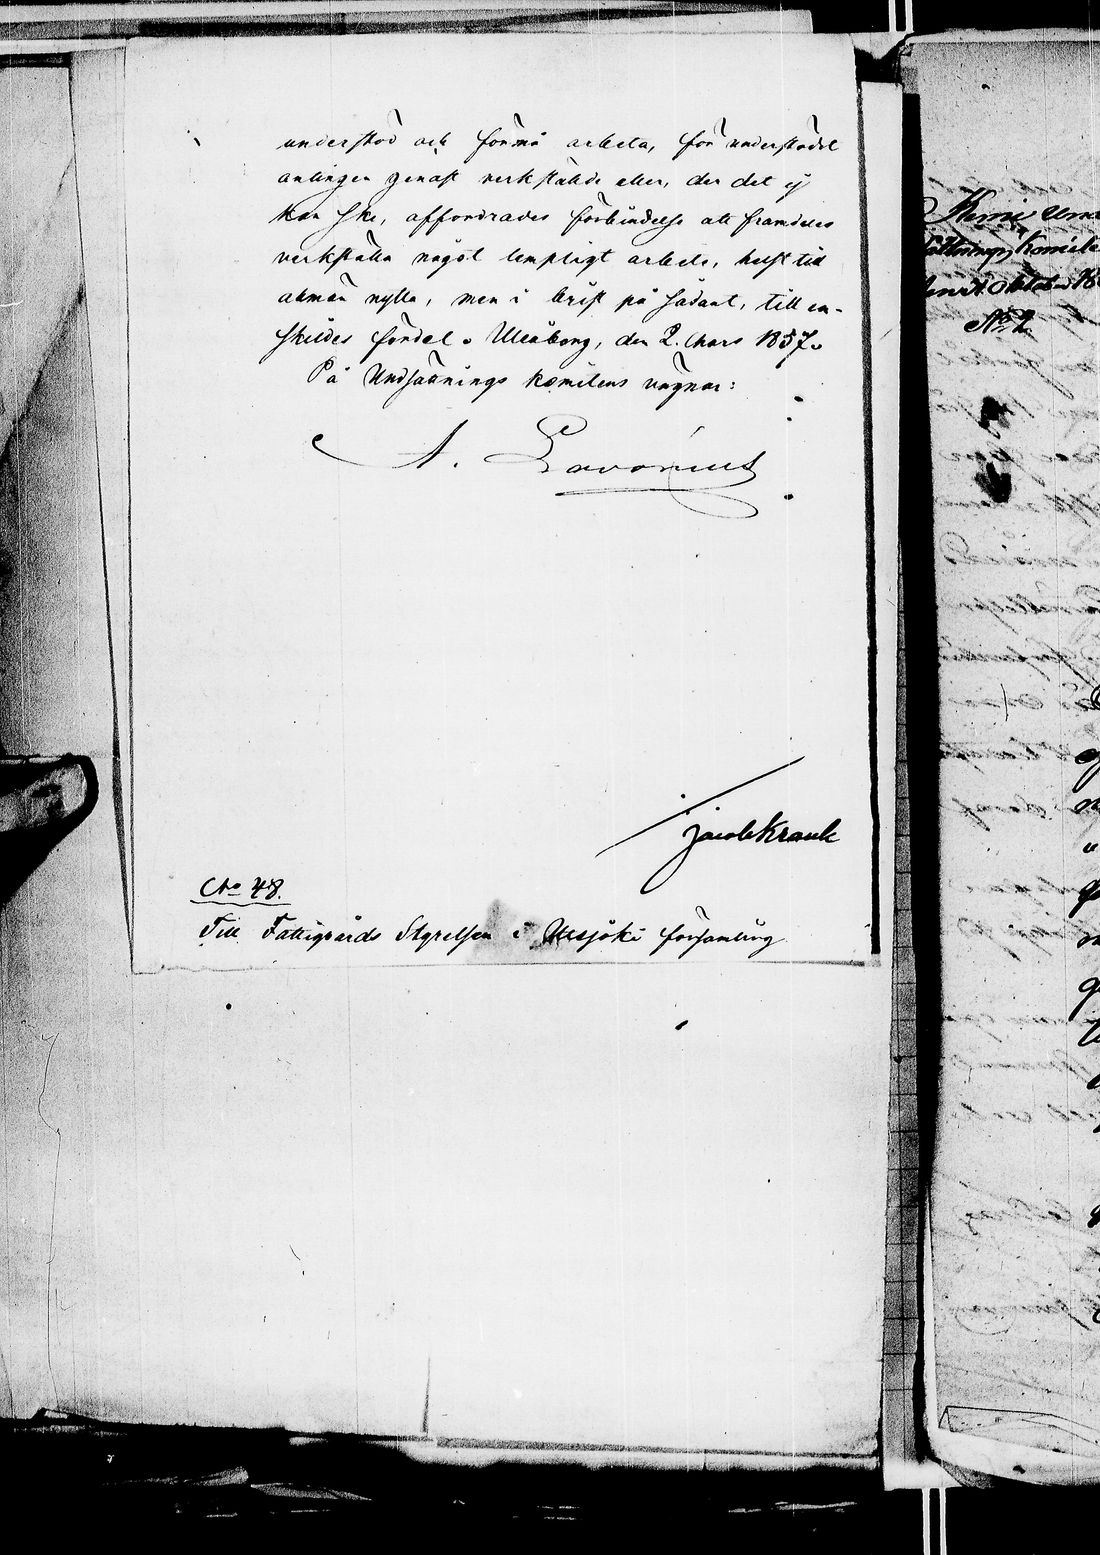 understöd och förmå arbeta, för understödet
antingen genast verkställde eller, der det ej
kan ske, affordrades förbindelse att framdeles
verkställa något lempligt arbete, helst till
allmän nytta, men i brist på sådant, till en-
skildes fördel. Uleåborg, den 2. Mars 1857.
På Undsättnings Komitens vägnar:
A. Lavonius
Jacob Krank
No 48.
Till Fattigvårds Styrelsen i Utsjoki församling
Kemi Und
sättnings Komite
Oktob 18
No 2